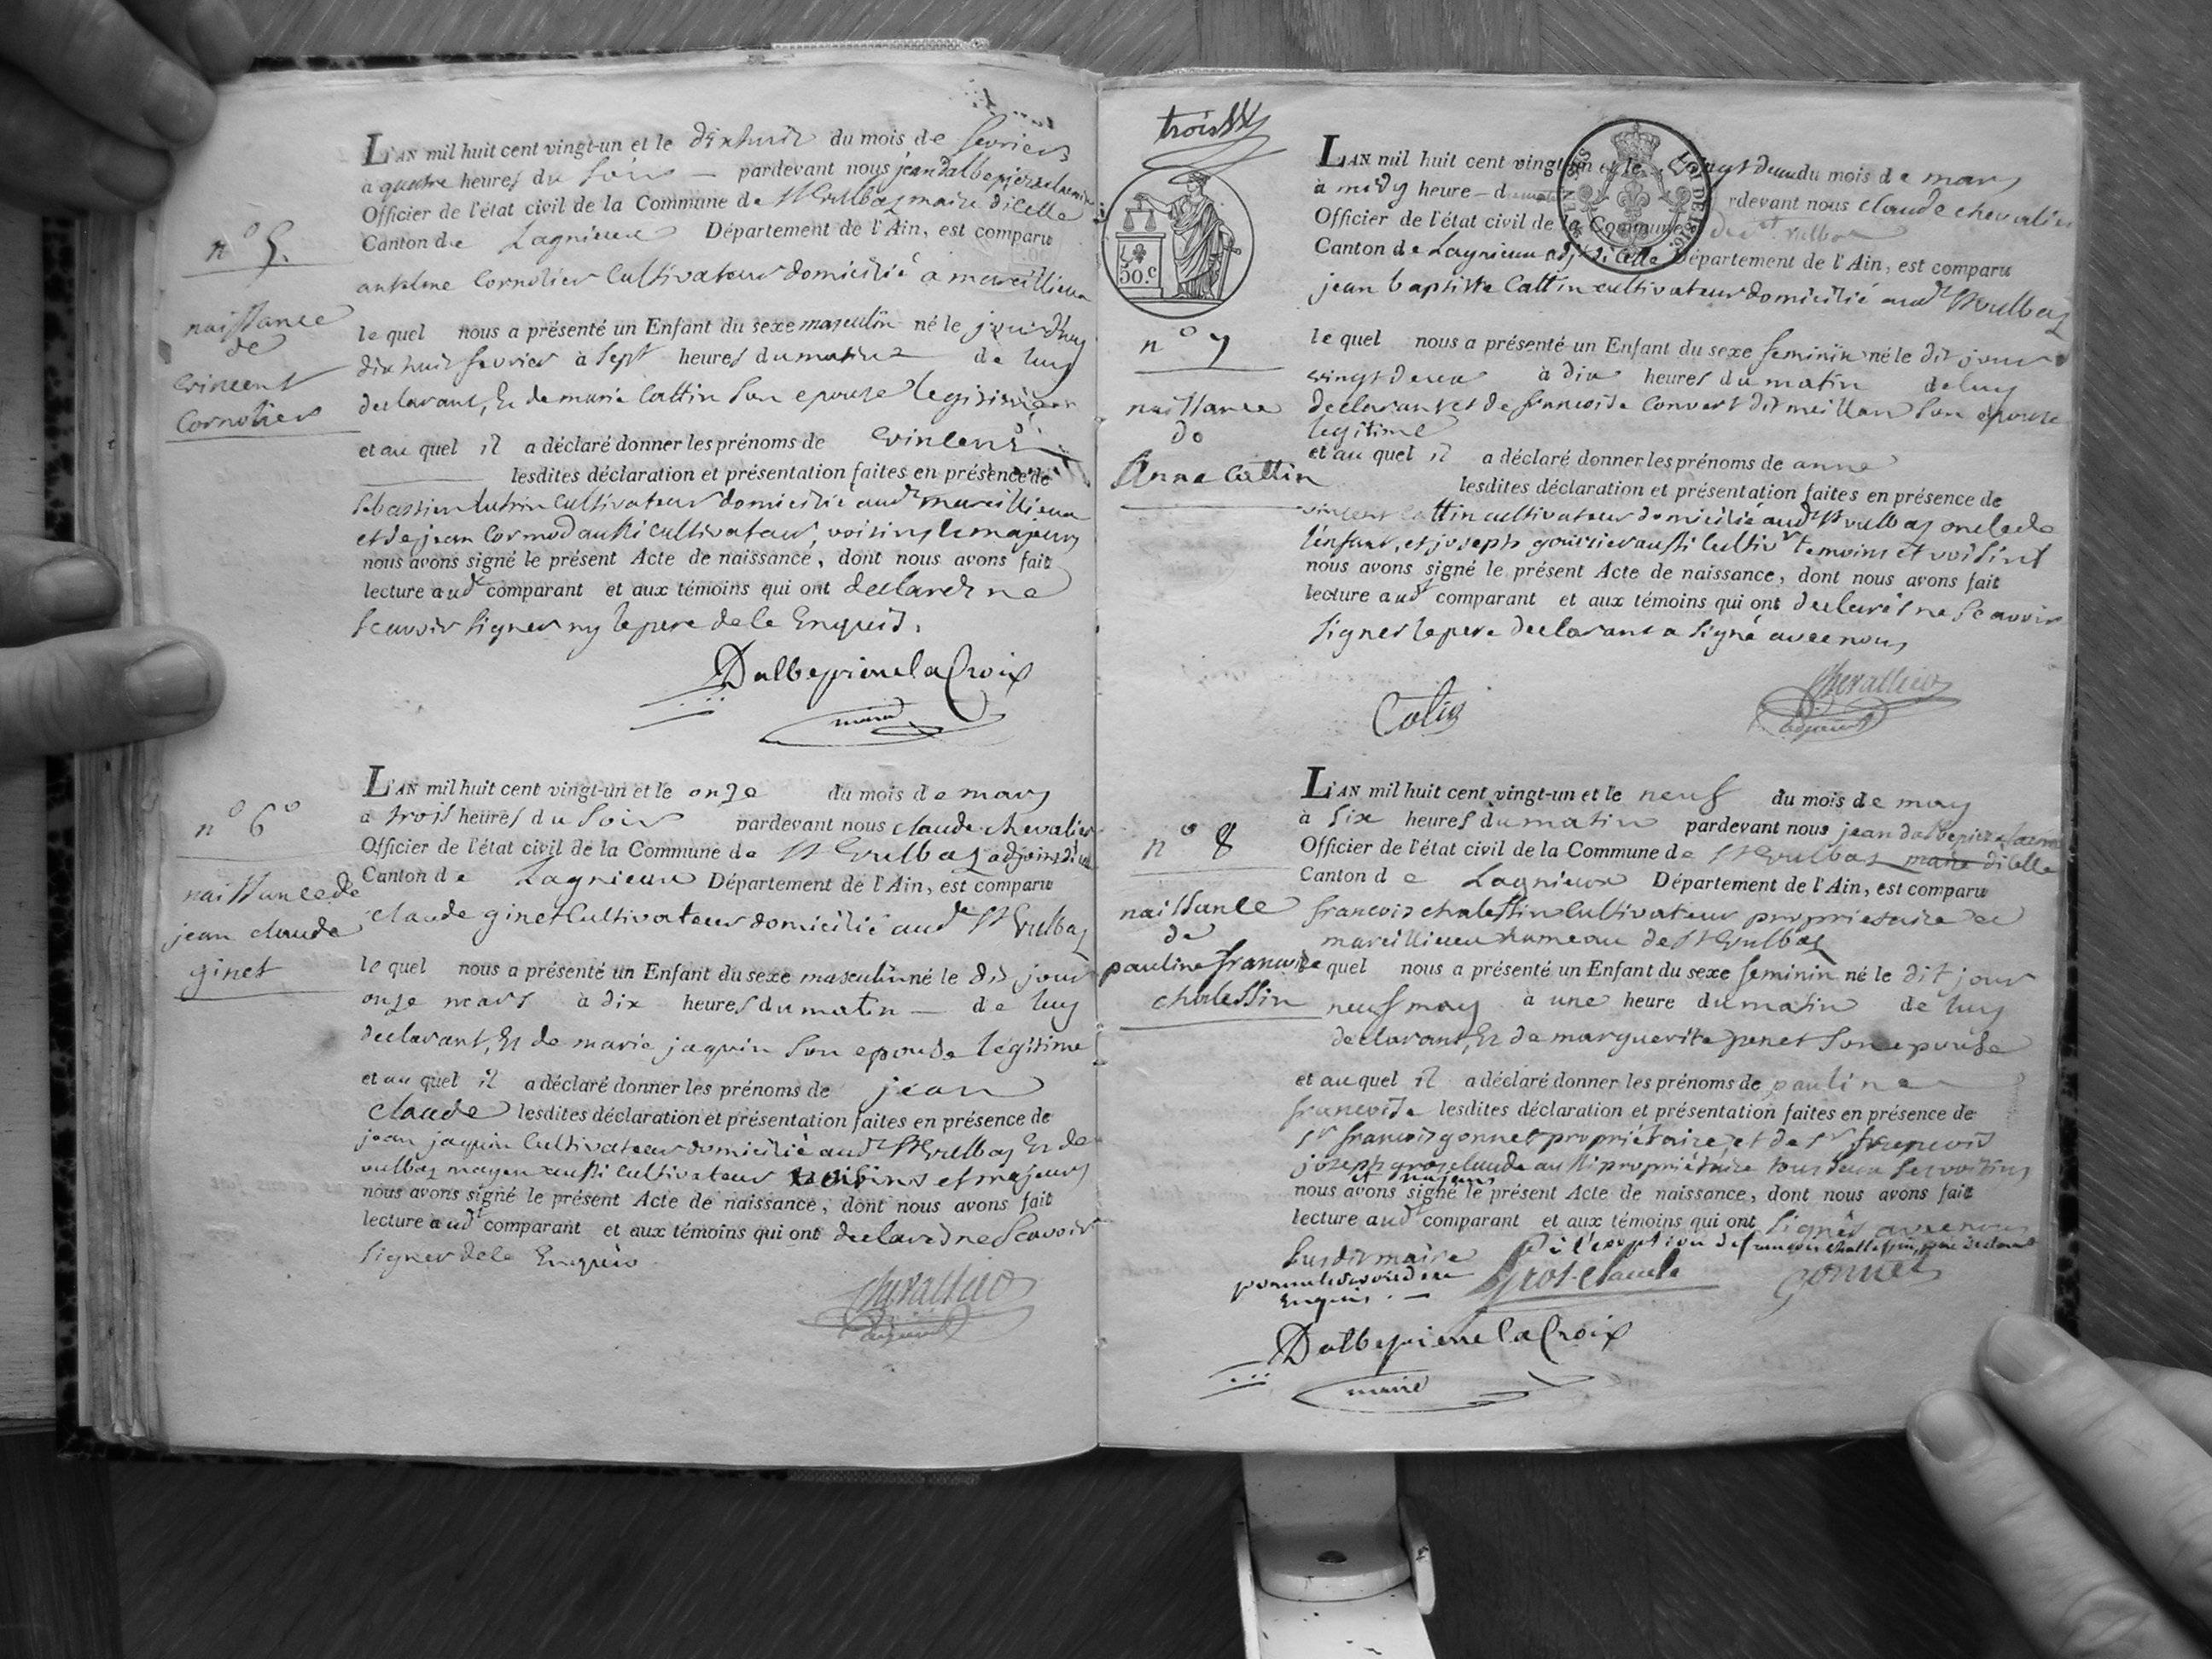 L'AN mil huit cent vingt-un et le dixhuit du mois de fevrier
a quatre heures du soir — pardevant nous jean dalbepierre lacroix
Officier de l'état civil de la Commune de St Vulbas maire dicelle
Canton de Lagnieux Département de l'Ain, est comparu
antelme Cornolier Cultivateur domicilié a marcillieux
n° 5.
naissance
de
vincent
Cornolier
le quel nous a présenté un Enfant du sexe masculin né le jourdhuy
dix huit fevrier à sept heures du matin de luy
declarant, Et de marie Cattin son epouse legitime
et au quel il a déclaré donner les prénoms de vincent
lesdites déclaration et présentation faites en présence de
sebastien lutrin Cultivateur domicilié audt marcillieux
et de jean Cormod aussi Cultivateur, voisins le majeurs
nous avons signé le présent Acte de naissance, dont nous avons fait
lecture audt comparant et aux témoins qui ont declarés ne
scavoir signer ny le pere de le Enquis.
Dalbepierre la Croix
maire
L'AN mil huit cent vingt-un et le onze du mois de mars
a trois heures du soir pardevant nous claude chevalier
Officier de l'état civil de la Commune de St Vulbas adjoint
Canton de Lagnieux Département de l'Ain, est comparu
claude ginet Cultivateur domicilié aud St Vulbas
n° 6°
naissance de
jean claude
ginet
le quel nous a présenté un Enfant du sexe masculin né le dit jour
onze mars à dix heures du matin — de luy
declarant, Et de marie jaquin son epouse legitime
et au quel il a déclaré donner les prénoms de jean
claude lesdites déclaration et présentation faites en présence de
jean jaquin Cultivateur domicilié audt St Vulbas Et de
vulbas mayeux aussi Cultivateur voisins et majeurs
nous avons signé le présent Acte de naissance, dont nous avons fait
lecture audt comparant et aux témoins qui ont declaré ne Scavoir
signer de le Enquis
Chevallier
adjoint
trois
50.c
LOI DE 1816
L'AN mil huit cent vingt-un et le vingt deux du mois de mars
à midy heure – pardevant nous claude chevalier
Officier de l'état civil de la Commune de St Vulbas
Canton de Lagnieux adjt dicelle Département de l'Ain, est comparu
jean baptiste Cattin cultivateur domicilié audt St Vulbas
n° 7
naissance
de
Anne Cattin
le quel nous a présenté un Enfant du sexe feminin né le dit jour
vingt deux à dix heures du matin de luy
declarant et de francoise Convert dit meillan son epouse
legitime
et au quel il a déclaré donner les prénoms de anne
lesdites déclaration et présentation faites en présence de
vincent Cattin cultivateur domicilié audt St Vulbas oncle de
l'enfant, et joseph goursier aussi Cultivr temoins et voisins
nous avons signé le présent Acte de naissance, dont nous avons fait
lecture audt comparant et aux témoins qui ont declarés ne Scavoir
signer le pere declarant a signé avec nous
Catin
Chevallier
adjoint
L'AN mil huit cent vingt-un et le neuf du mois de may
à six heures du matin pardevant nous jean dalbepierre lacroix
Officier de l'état civil de la Commune de St Vulbas maire dicelle
Canton de Lagnieux Département de l'Ain, est comparu
francois chalessin Cultivateur proprietaire de
marcillieux hameau de St Vulbas
n° 8
naissance
de
pauline francoise
chalessin
quel nous a présenté un Enfant du sexe feminin né le dit jour
neuf may à une heure du matin de luy
declarant, Et de marguerite penet son epouse
et au quel il a déclaré donner les prénoms de pauline
francoise lesdites déclaration et présentation faites en présence de
Sr francois gonnet propriétaire, et de Sr francois
joseph grosclaude aussi propriétaire tous deux ses voisins
et majeurs
nous avons signé le présent Acte de naissance, dont nous avons fait
lecture audt comparant et aux témoins qui ont signés avec nous
susdit maire à l'exception de francois chalessin, pere declarant
Enquis. —
Grosclaude
Gonnet
Dalbepierre la Croix
maire